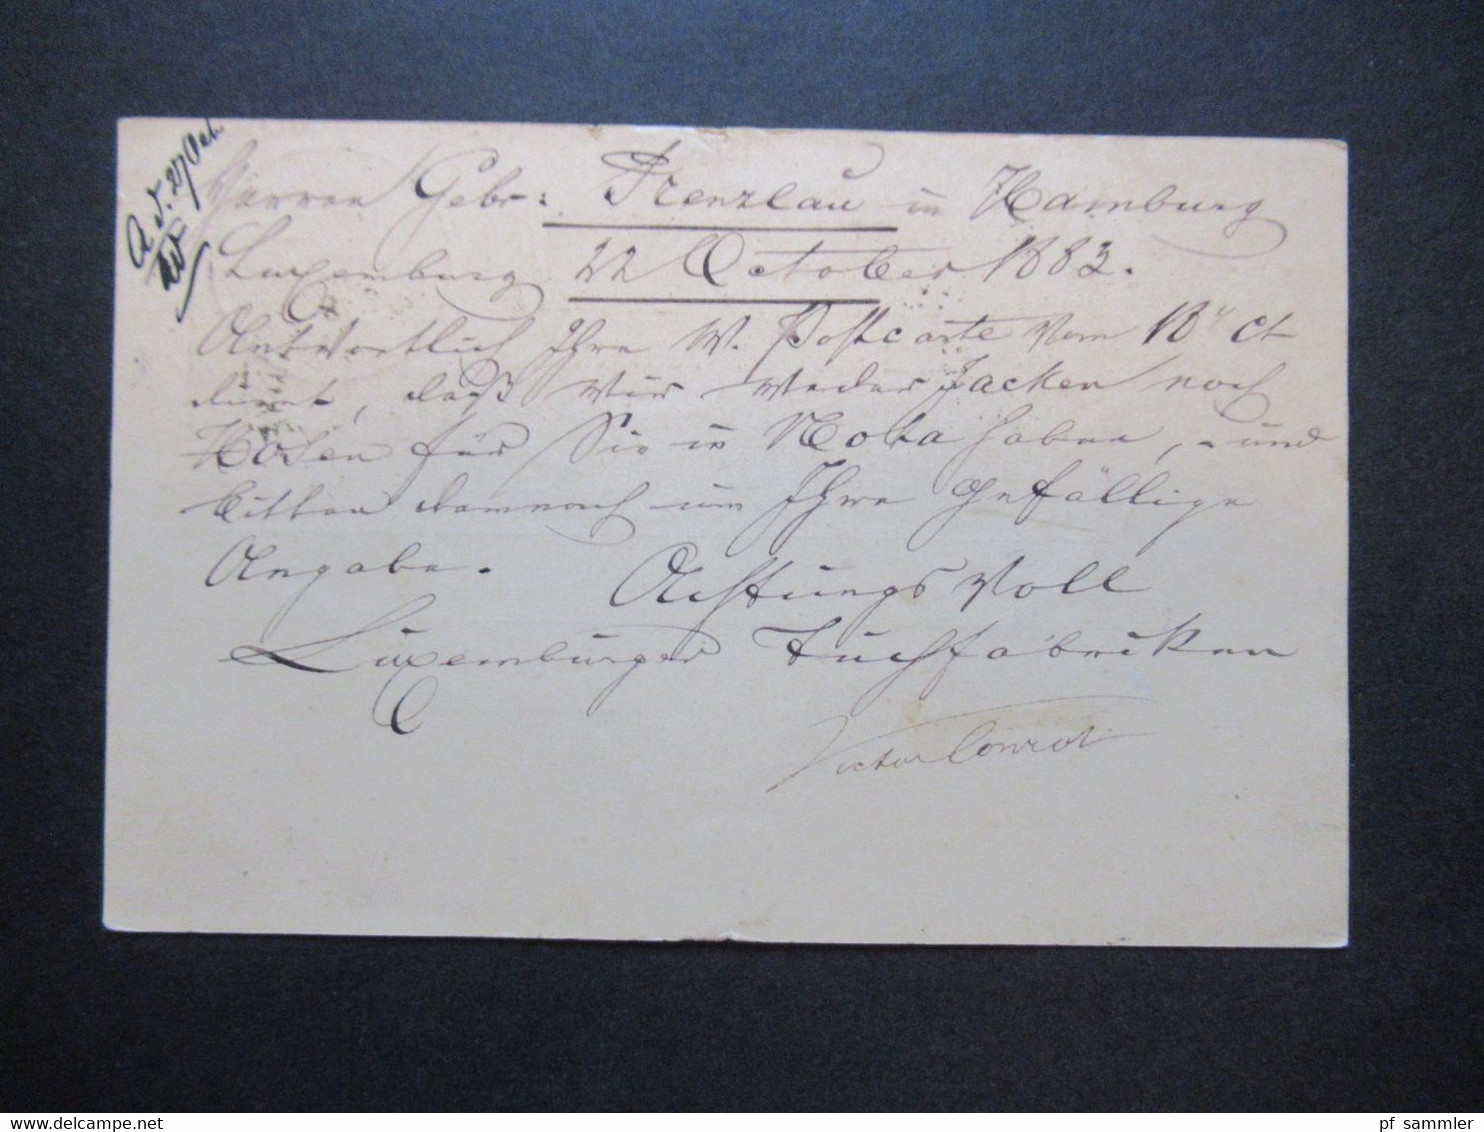 A d. 27 Oct.
Herren Gebr: Prenzlau in Hamburg
Luxemburg 22 October 1883.
Antwortlich Ihre W. Postcarte vom 18 ct
dient, daß wir weder Jacken noch
Hosen für Sie in Nota haben, und
bitten demnach um Ihre gefällige
Angabe.
Achtungsvoll
Luxemburger Tuchfabriken
Victor Conrot
www.delcampe.net
pf_sammler